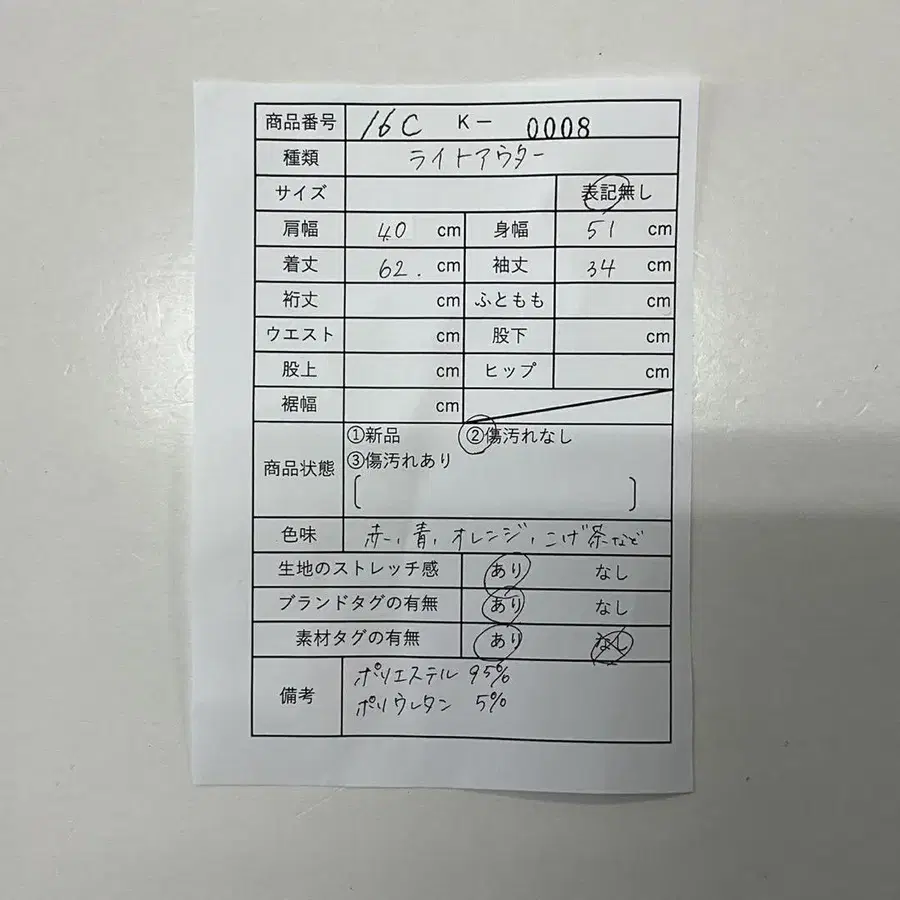 商品番号 16C K- 0008
種類 ライトアウター
サイズ 表記無し
肩幅 40 cm 身幅 51 cm
着丈 62. cm 袖丈 34 cm
裄丈 cm ふともも cm
ウエスト cm 股下 cm
股上 cm ヒップ cm
裾幅 cm
①新品 ②傷汚れなし
商品状態 ③傷汚れあり
色味 赤、青、オレンジ、こげ茶など
生地のストレッチ感 あり なし
ブランドタグの有無 あり なし
素材タグの有無 あり なし
備考 ポリエステル 95%
ポリウレタン 5%